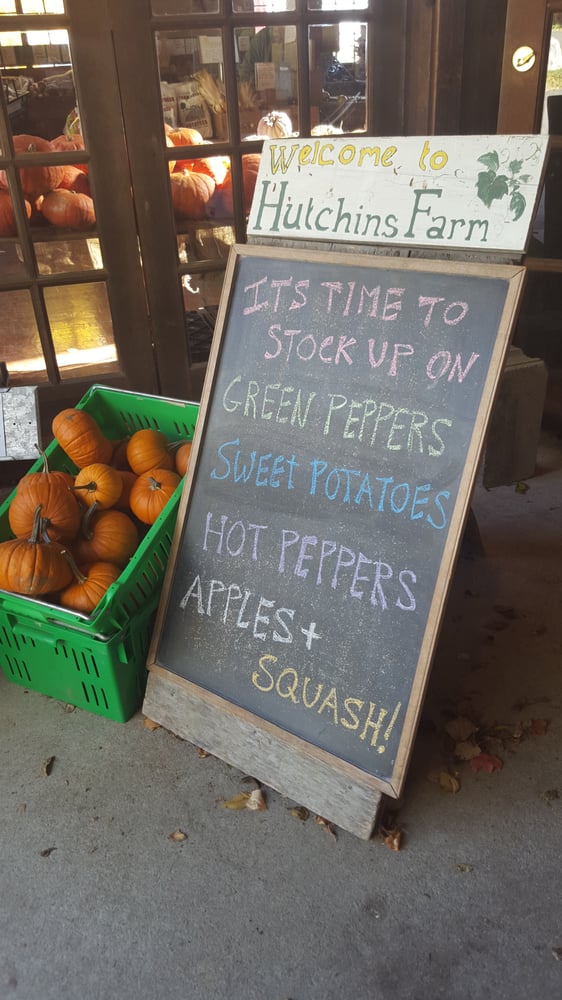 Welcome to
Hutchins Farm
ITS TIME TO
STOCK UP ON
GREEN PEPPERS
SWEET POTATOES
HOT PEPPERS
APPLES +
SQUASH!